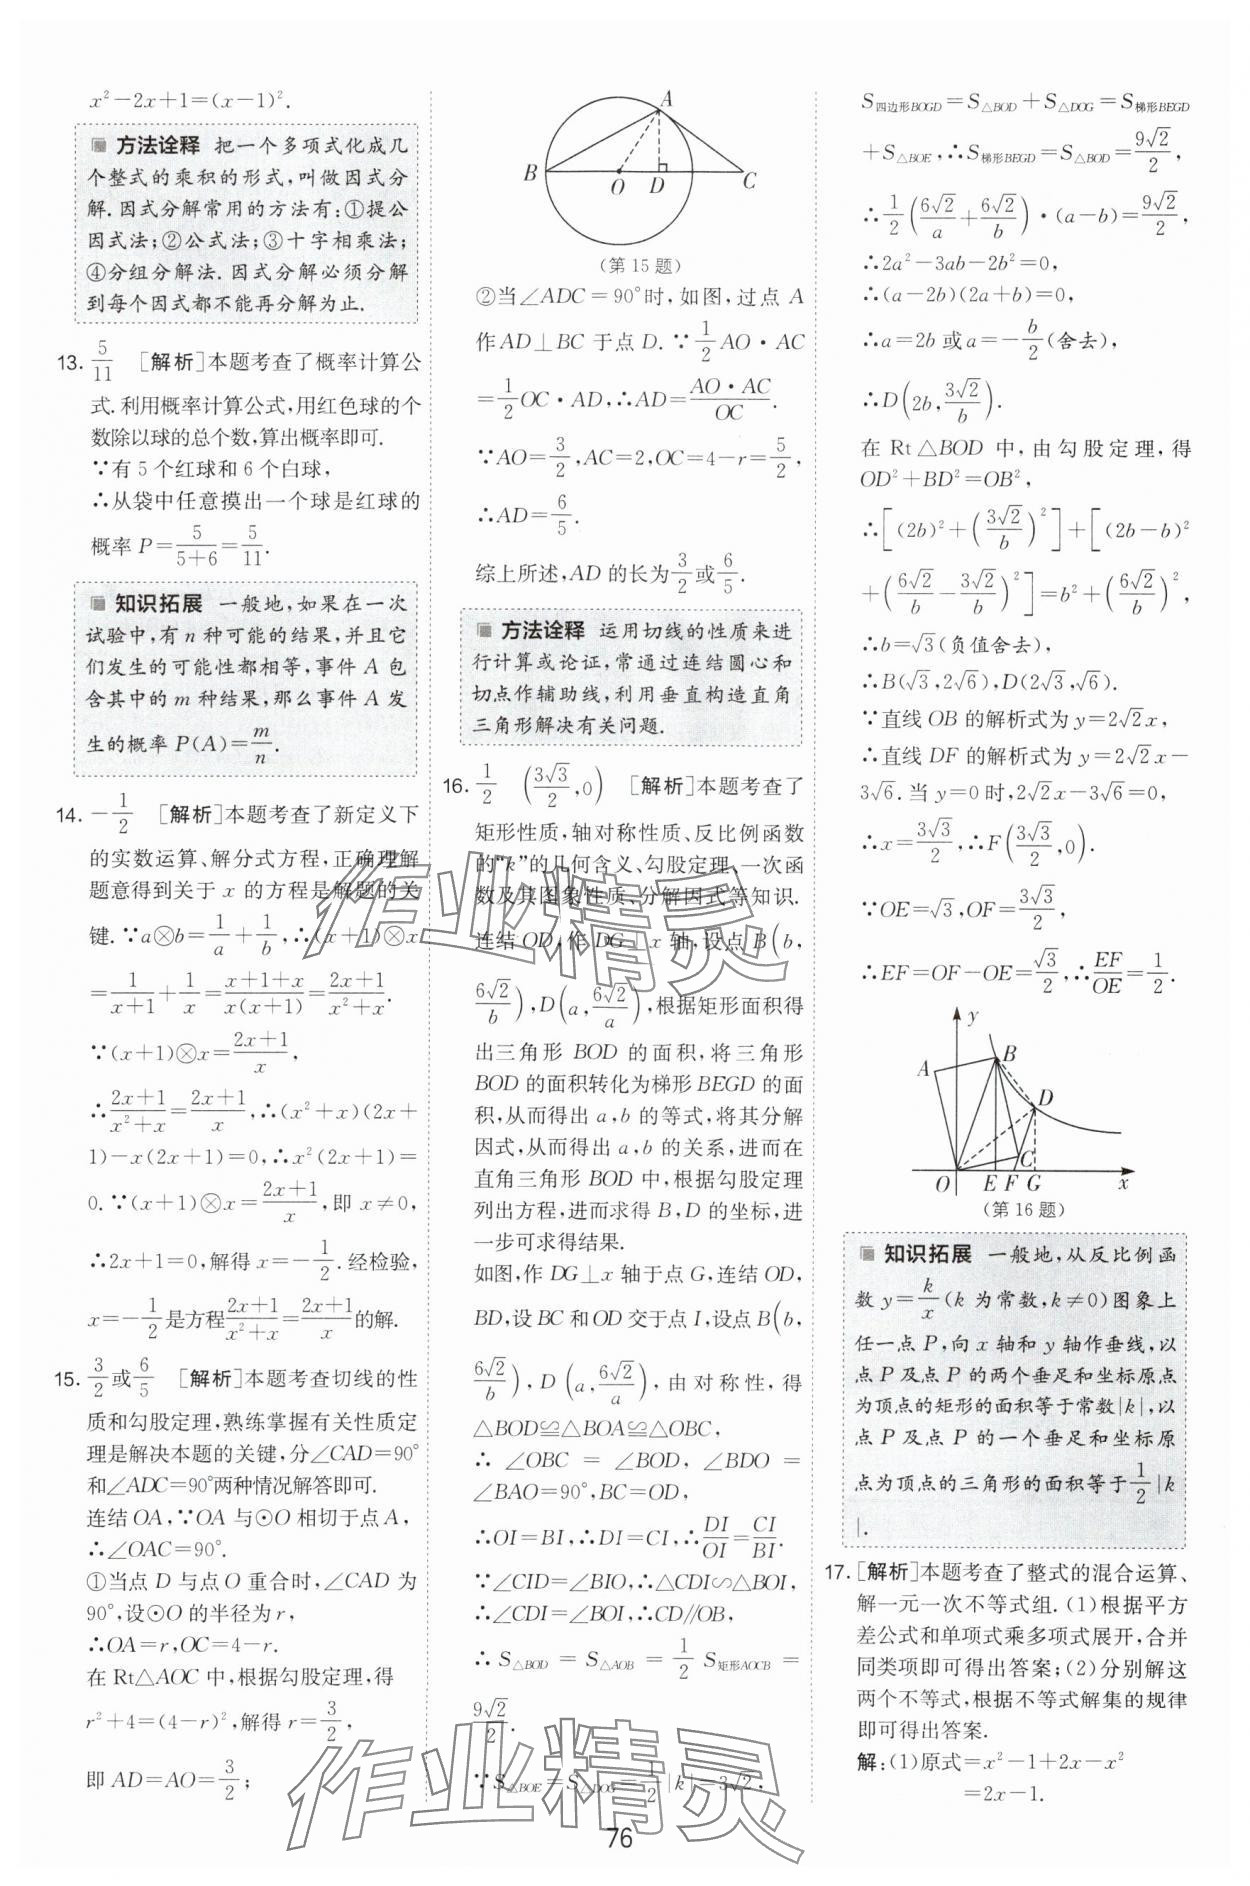 x²−2x+1=(x−1)².
方法诠释 把一个多项式化成几
个整式的乘积的形式,叫做因式分
解.因式分解常用的方法有:①提公
因式法;②公式法;③十字相乘法;
④分组分解法.因式分解必须分解
到每个因式都不能再分解为止.
13. 5/11 [解析]本题考查了概率计算公
式.利用概率计算公式,用红色球的个
数除以球的总个数,算出概率即可.
∵有5个红球和6个白球,
∴从袋中任意摸出一个球是红球的
概率 P=5/(5+6)=5/11.
知识拓展 一般地,如果在一次
试验中,有 n 种可能的结果,并且它
们发生的可能性都相等,事件 A 包
含其中的 m 种结果,那么事件 A 发
生的概率 P(A)=m/n.
14. −1/2 [解析]本题考查了新定义下
的实数运算、解分式方程,正确理解
题意得到关于 x 的方程是解题的关
键.∵a⊗b=1/a+1/b,∴(x+1)⊗x
=1/(x+1)+1/x=(x+1+x)/(x(x+1))=(2x+1)/(x²+x).
∵(x+1)⊗x=(2x+1)/x,
∴(2x+1)/(x²+x)=(2x+1)/x,∴(x²+x)(2x+
1)−x(2x+1)=0,∴x²(2x+1)=
0.∵(x+1)⊗x=(2x+1)/x,即 x≠0,
∴2x+1=0,解得 x=−1/2.经检验,
x=−1/2是方程(2x+1)/(x²+x)=(2x+1)/x的解.
15. 3/2或6/5 [解析]本题考查切线的性
质和勾股定理,熟练掌握有关性质定
理是解决本题的关键,分∠CAD=90°
和∠ADC=90°两种情况解答即可.
连结OA,∵OA 与⊙O 相切于点A,
∴∠OAC=90°.
①当点 D 与点O 重合时,∠CAD 为
90°,设⊙O 的半径为 r,
∴OA=r,OC=4−r.
在 Rt△AOC 中,根据勾股定理,得
r²+4=(4−r)²,解得 r=3/2,
即 AD=AO=3/2;
A
B
O
D
C
(第15题)
②当∠ADC=90°时,如图,过点 A
作AD⊥BC 于点 D.∵1/2AO·AC
=1/2OC·AD,∴AD=(AO·AC)/OC.
∵AO=3/2,AC=2,OC=4−r=5/2,
∴AD=6/5.
综上所述,AD 的长为3/2或6/5.
方法诠释 运用切线的性质来进
行计算或论证,常通过连结圆心和
切点作辅助线,利用垂直构造直角
三角形解决有关问题.
16. 1/2 (3√3/2,0) [解析]本题考查了
矩形性质,轴对称性质、反比例函数
的“k”的几何含义、勾股定理、一次函
数及其图象性质、分解因式等知识.
连结OD,作 DG⊥x 轴,设点 B(b,
6√2/b),D(a,6√2/a),根据矩形面积得
出三角形 BOD 的面积,将三角形
BOD 的面积转化为梯形 BEGD 的面
积,从而得出 a,b 的等式,将其分解
因式,从而得出 a,b 的关系,进而在
直角三角形 BOD 中,根据勾股定理
列出方程,进而求得 B,D 的坐标,进
一步可求得结果.
如图,作 DG⊥x 轴于点G,连结OD,
BD,设 BC 和OD 交于点 I,设点 B(b,
6√2/b),D(a,6√2/a),由对称性,得
△BOD≌△BOA≌△OBC,
∴ ∠OBC = ∠BOD, ∠BDO =
∠BAO=90°,BC=OD,
∴OI=BI,∴DI=CI,∴DI/OI=CI/BI.
∵∠CID=∠BIO,∴△CDI∽△BOI,
∴∠CDI=∠BOI,∴CD∥OB,
∴ S△BOD = S△AOB = 1/2 S矩形AOCB =
9√2/2.
∵S△BOE=S△DOG=1/2|k|=3√2,
S四边形BOGD=S△BOD+S△DOG=S梯形BEGD
+S△BOE,∴S梯形BEGD=S△BOD=9√2/2,
∴1/2(6√2/a+6√2/b)·(a−b)=9√2/2,
∴2a²−3ab−2b²=0,
∴(a−2b)(2a+b)=0,
∴a=2b 或a=−b/2(舍去),
∴D(2b,3√2/b).
在 Rt△BOD 中,由勾股定理,得
OD²+BD²=OB²,
∴[(2b)²+(3√2/b)²]+[(2b−b)²
+(6√2/b−3√2/b)²]=b²+(6√2/b)²,
∴b=√3(负值舍去),
∴B(√3,2√6),D(2√3,√6).
∵直线OB 的解析式为 y=2√2x,
∴直线 DF 的解析式为 y=2√2x−
3√6.当 y=0时,2√2x−3√6=0,
∴x=3√3/2,∴F(3√3/2,0).
∵OE=√3,OF=3√3/2,
∴EF=OF−OE=√3/2,∴EF/OE=1/2.
y
A
B
D
C
O
E F G
x
(第16题)
知识拓展 一般地,从反比例函
数 y=k/x(k 为常数,k≠0)图象上
任一点 P,向 x 轴和 y 轴作垂线,以
点 P 及点 P 的两个垂足和坐标原点
为顶点的矩形的面积等于常数|k|,以
点 P 及点 P 的一个垂足和坐标原
点为顶点的三角形的面积等于1/2|k
|.
17. [解析]本题考查了整式的混合运算、
解一元一次不等式组.(1)根据平方
差公式和单项式乘多项式展开,合并
同类项即可得出答案;(2)分别解这
两个不等式,根据不等式解集的规律
即可得出答案.
解:(1)原式=x²−1+2x−x²
=2x−1.
作业精灵
作业精灵
76